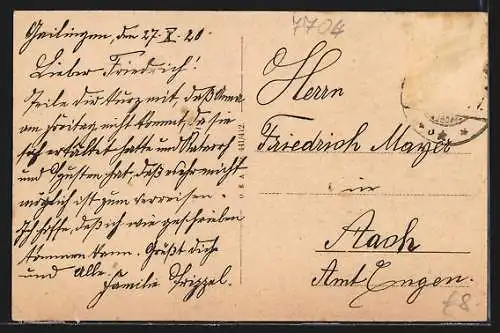 7704
Gailingen, den 27. X. 20.
Lieber Friedrich!
Teile dir kurz mit, daß Anna
am Freitag nicht kommt, da sie
sich erkältet hatte und Katarrh
und Husten hat, daß es ihr nicht
möglich ist zum verreisen.
Ich hoffe, daß ich wie geschrieben
kommen kann. Grüßt dich
und Alle.
Familie Trippel.
O.K.A. 441/412
Herrn
Friedrich Mayer
in
Aach
Amt Engen.
£8